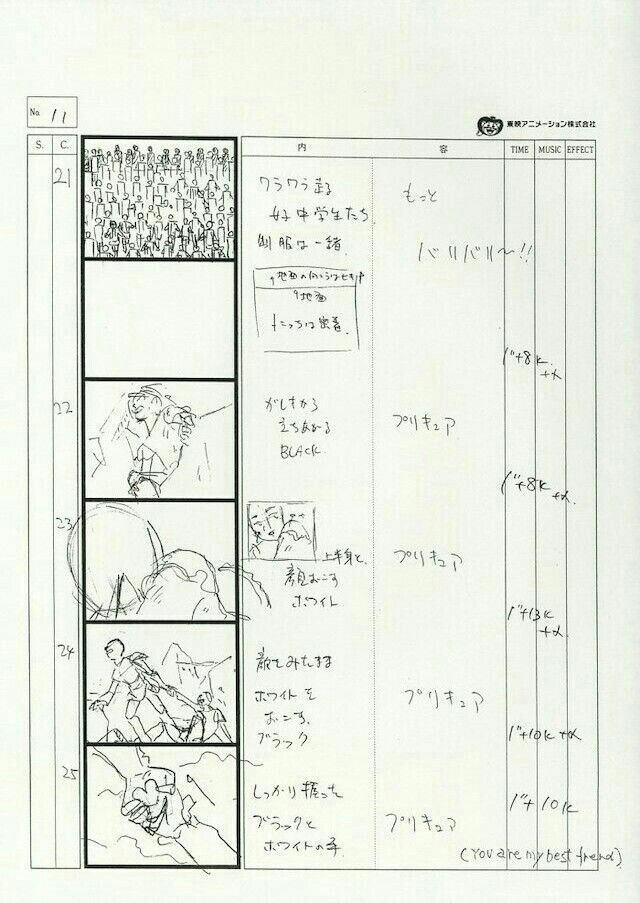 No. 11
東映アニメーション株式会社
S. C. 内 容 TIME MUSIC EFFECT
21
ワラワラ走る
女子中学生たち
制服は一緒
もっと
バリバリ〜!!
地面
こっちは密着
1"+8k
+α
22
がしきから
立ちあがる
BLACK
プリキュア
1"+8k
+α
23
上半身と、
顔おこす
ホワイト
プリキュア
1"+13k
+α
24
顔をみたまま
ホワイトを
おこす、
ブラック
プリキュア
1"+10k +α
25
しっかり握った
ブラックと
ホワイトの手
プリキュア
1"+10k
(You are my best friend)